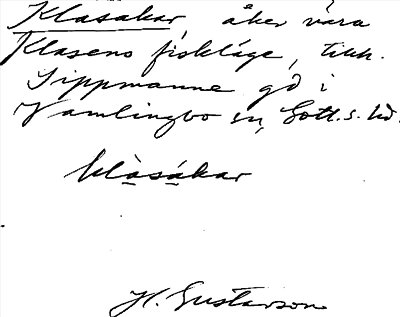 Klasakar, åker vära
Klasens fiskläge, tillh.
Sippmanne gd i
Vamlingbo sn, Gotl. s. hd.
klàsákar
H. Gustavson